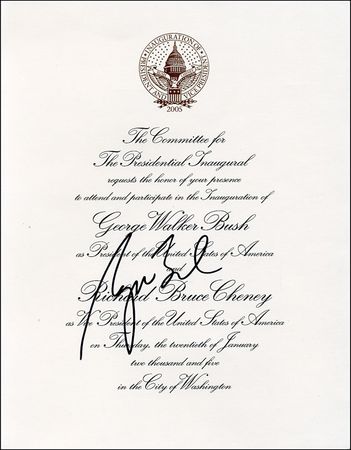 INAUGURATION OF
PRESIDENT AND
VICE PRESIDENT
2005
The Committee for
The Presidential Inaugural
requests the honor of your presence
to attend and participate in the Inauguration of
George Walker Bush
as President of the United States of America
and
Richard Bruce Cheney
as Vice President of the United States of America
on Thursday, the twentieth of January
two thousand and five
in the City of Washington